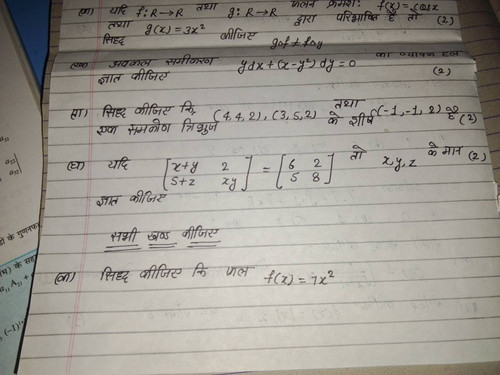 (क) यदि f: R→R तथा g: R→R फलन क्रमशः f(x) = cosx
तथा g(x) = 3x² द्वारा परिभाषित है तो (2)
सिद्ध कीजिए gof ≠ fog
(ख) अवकल समीकरण ydx + (x-y²) dy = 0 का व्यापक हल
ज्ञात कीजिए (2)
(ग) सिद्ध कीजिए कि, (4,4,2), (3,5,2) तथा (-1,-1,2)
एक समकोण त्रिभुज के शीर्ष है (2)
(घ) यदि [x+y 2] = [6 2] तो x,y,z के मान (2)
[5+z xy] [5 8]
ज्ञात कीजिए
सभी खण्ड कीजिए
(क) सिद्ध कीजिए कि फलन f(x) = 7x²